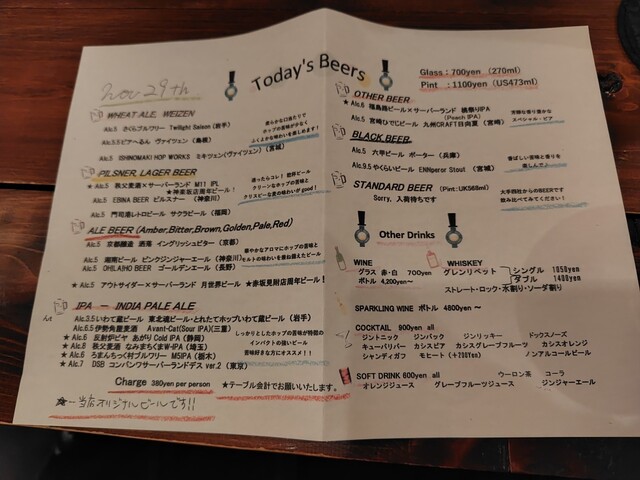 Nov 29th
Today's Beers
Glass：700yen (270ml)
Pint ：1100yen (US473ml)
WHEAT ALE WEIZEN
Alc.5 さくらブルワリー Twilight Saison (岩手)
Alc.5.5 ビアへるん ヴァイツェン (島根)
Alc.5 ISHINOMAKI HOP WORKS ミキツェン(ヴァイツェン) (宮城)
柔らかな口当たりで
ホップの苦味が少なく
PILSNER, LAGER BEER
★ Alc.5 秩父麦酒×サーバーランド M11 IPL
★神楽坂店周年ビール！
Alc.5 EBINA BEER ピルスナー (神奈川)
Alc.5 門司港レトロビール サクラビール (福岡)
迷ったらコレ！ 乾杯ビール
クリーンなホップの苦味と
クリスピーな麦の味わいが good！
ALE BEER (Amber,Bitter,Brown,Golden,Pale,Red)
Alc.5 京都醸造 洒落 イングリッシュビター (京都)
Alc.5 湘南ビール ピンクジンジャーエール (神奈川)
Alc.5 OH!LA!HO BEER ゴールデンエール (長野)
★ Alc.5 アウトサイダー×サーバーランド 月世界ビール ★赤坂見附店周年ビール！
華やかなアロマにホップの苦味と
モルトの味わいを兼ね揃えたビール
IPA － INDIA PALE ALE
Alc.3.5 いわて蔵ビール 東北魂ビール・とれたてホップいわて蔵ビール (岩手)
Alc.6.5 伊勢角屋麦酒 Avant-Cat(Sour IPA)(三重)
★ Alc.6 反射炉ビヤ あがり Cold IPA (静岡)
★ Alc.8 秩父麦酒 なみまちくまW-IPA (埼玉)
★ Alc.6 ろまんちっく村ブルワリー M5IPA (栃木)
★ Alc.7 DSB コンバンワサーバーランドデス ver.2 (東京)
しっかりとしたホップの苦味が特徴の
インパクトの強いビール
苦味好きな方にオススメ！！
Charge 380yen per person
★テーブル会計でお願いいたします。
★…当店オリジナルビールです!!
OTHER BEER
★ Alc.6 福島路ビール×サーバーランド 桃祭りIPA
(Peach IPA)
Alc.5 宮崎ひでじビール 九州CRAFT日向夏 (宮崎)
芳醇な香り豊かな
スペシャル・ビア
BLACK BEER
Alc.5 六甲ビール ポーター (兵庫)
Alc.9.5 やくらいビール ENNperor Stout (宮城)
香ばしい苦味と香りを
楽しんで♪
STANDARD BEER (Pint：UK568ml)
Sorry, 入荷待ちです
大手四社からのBEERです
飲み比べてみてください！
Other Drinks
WINE
グラス 赤・白 700yen
ボトル 4,200yen～
WHISKEY
グレンリベット
シングル 1050yen
ダブル 1400yen
ストレート・ロック・水割り・ソーダ割り
SPARKLING WINE ボトル 4800yen ～
COCKTAIL 900yen all
ジントニック ジンバック ジンリッキー ドックスノーズ
キューバリバー カシスビア カシスグレープフルーツ カシスオレンジ
シャンディガフ モヒート (＋200Yen) ノンアルコールビール
SOFT DRINK 600yen all ウーロン茶 コーラ
オレンジジュース グレープフルーツジュース ジンジャーエール